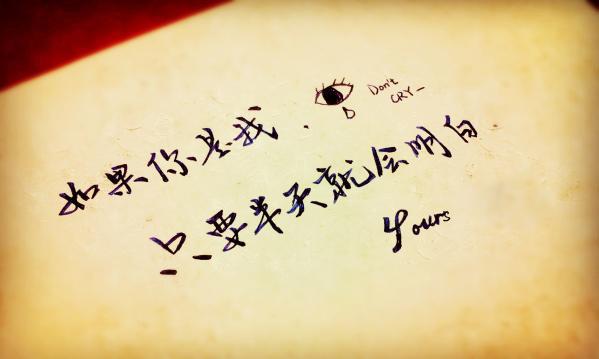 如果你是我.
Don't
CRY-
只要半天就会明白
Yours